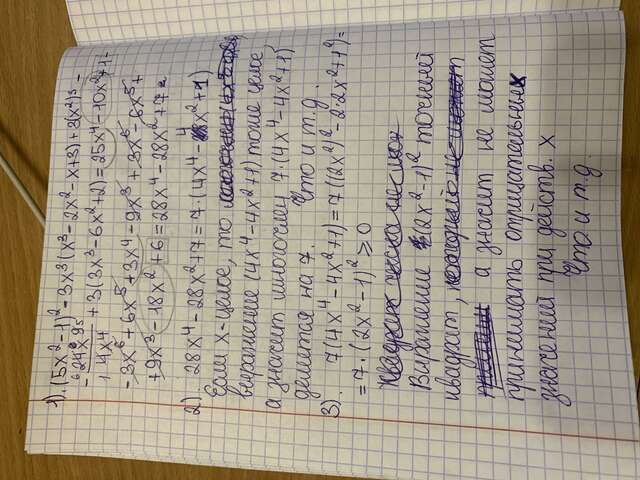 1). (5x²-1)² - 3x³(x³ - 2x² - x+3) + 3(x⁴)³ -
- 6x² + 2) = 25x⁴ - 10x² + 1 -
- 3x⁶ + 6x⁵ + 3x⁴ - 9x³ + 3x⁶ - 6x⁵ +
+ 9x³ - 18x² + 6 = 28x⁴ - 28x² + 7 =
2). 28x⁴ - 28x² + 7 = 7·(4x⁴ - 4x² + 1)
Если x - целое, то
выражение (4x⁴ - 4x² + 1) тоже целое
а значит многочлен 7·(4x⁴ - 4x² + 1)
делится на 7. Что и т.д.
3). 7(4x⁴ - 4x² + 1) = 7((2x²)² - 2·2x² + 1²) =
= 7·(2x² - 1)² ≥ 0
Выражение (2x² - 1)² точный
квадрат,
а значит не может
принимать отрицательных
значений при действ. x
Что и т.д.